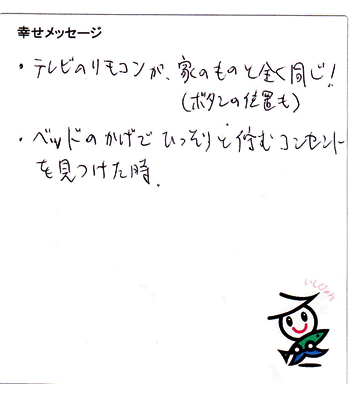 幸せメッセージ
・テレビのリモコンが、家のものと全く同じ!
(ボタンの位置も)
・ベッドのかげでひっそりと佇むコンセント
を見つけた時。